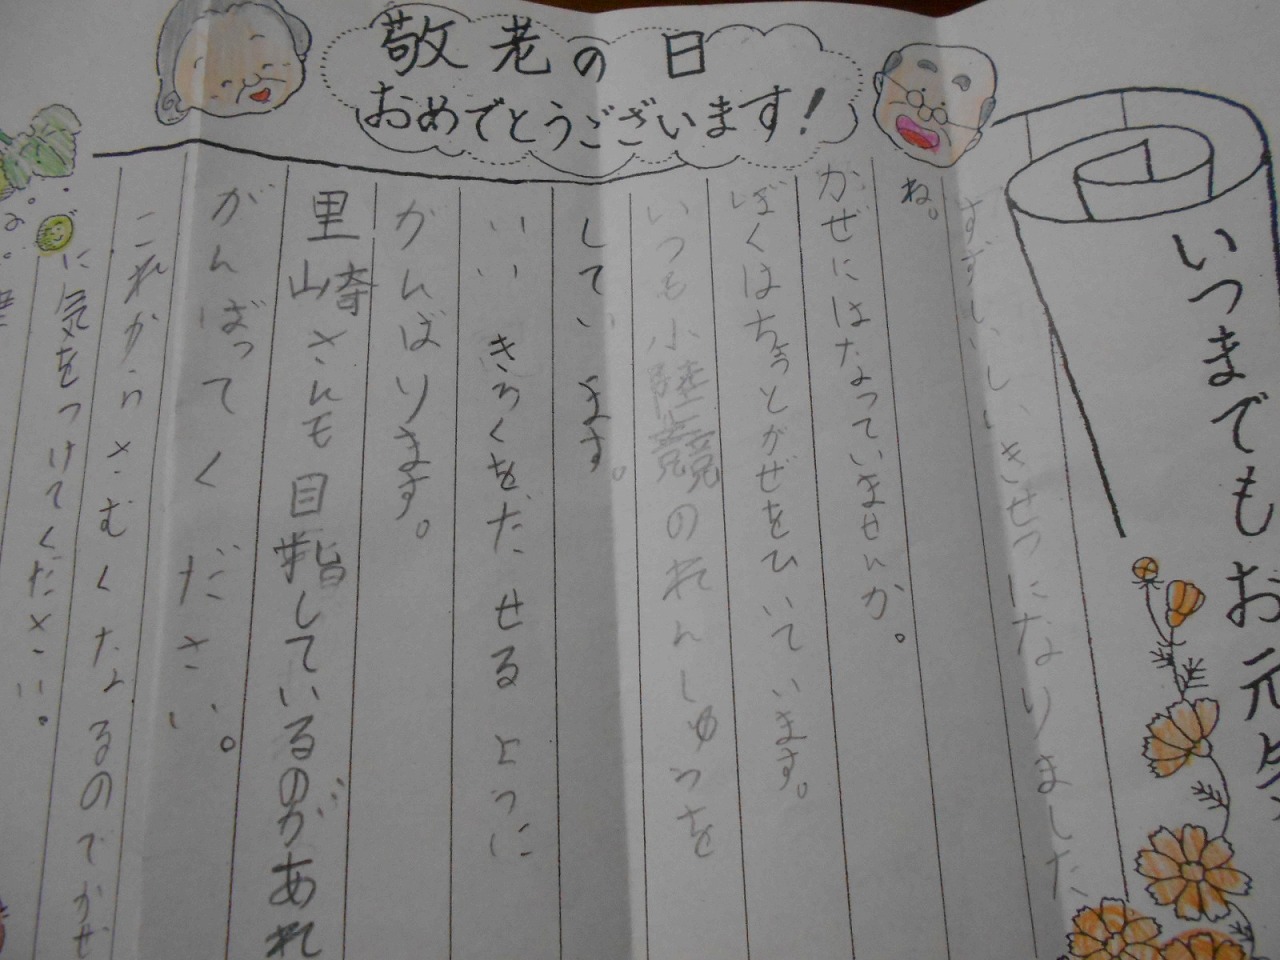 敬老の日
おめでとうございます!
いつまでもお元気
すずしいしいきせつになりました
ね。
かぜにはなっていませんか。
ぼくはちょっとかぜをひいています。
いつも小陸競のれんしゅうを
しています。
いいきろくをだせるように
がんばります。
里山崎さんも目指しているのがあれ
がんばってください。
これからさむくなるのでかぜ
に気をつけてください。